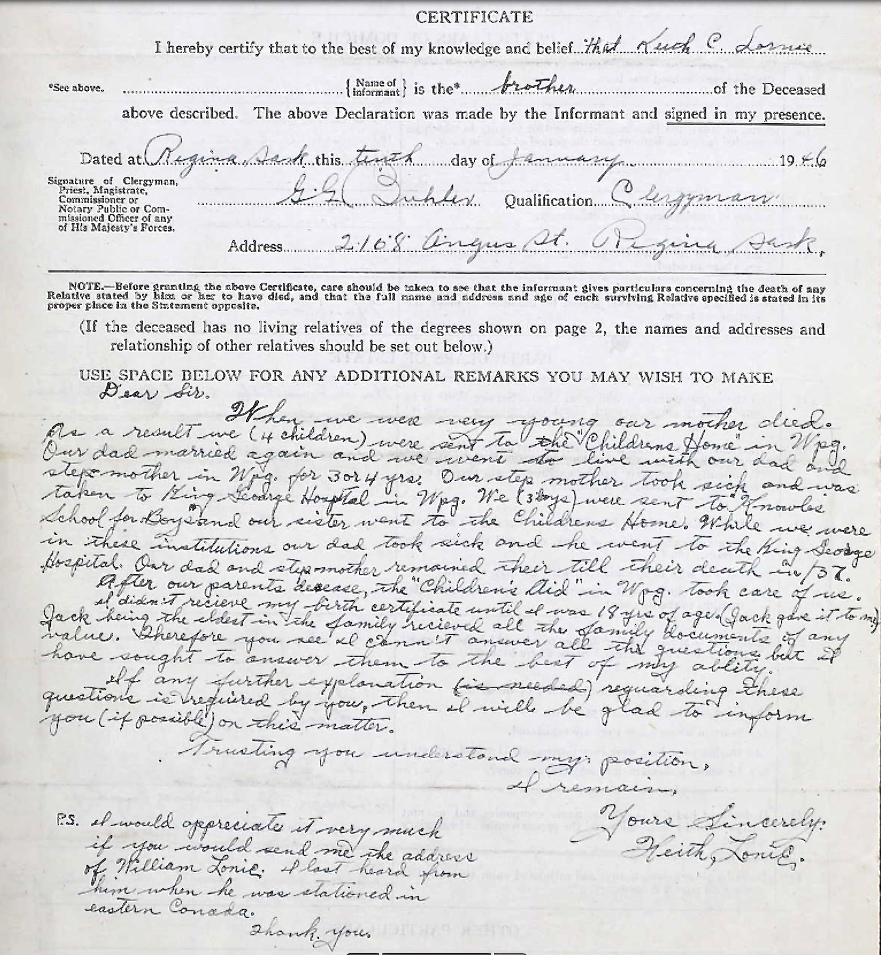 CERTIFICATE
I hereby certify that to the best of my knowledge and belief that Keith C. Lonie
*See above. {Name of informant} is the* brother of the Deceased
above described. The above Declaration was made by the Informant and signed in my presence.
Dated at Regina, Sask this tenth day of January 1946
Signature of Clergyman,
Priest, Magistrate,
Commissioner or
Notary Public or Com-
missioned Officer of any
of His Majesty's Forces.
G.G. Buhler Qualification Clergyman
Address 2108 Angus St. Regina Sask,
NOTE.—Before granting the above Certificate, care should be taken to see that the informant gives particulars concerning the death of any
Relative stated by him or her to have died, and that the full name and address and age of each surviving Relative specified is stated in its
proper place in the Statement opposite.
(If the deceased has no living relatives of the degrees shown on page 2, the names and addresses and
relationship of other relatives should be set out below.)
USE SPACE BELOW FOR ANY ADDITIONAL REMARKS YOU MAY WISH TO MAKE
Dear Sir.
When we were very young our mother died.
As a result we (4 children) were sent to the "Childrens Home" in Wpg.
Our dad married again and we went to live with our dad and
step mother in Wpg. for 3 or 4 yrs. Our step mother took sick and was
taken to King George Hospital in Wpg. We (3 boys) were sent to "Knowles
School for Boys" and our sister went to the Childrens Home. While we were
in these institutions our dad took sick and he went to the King George
Hospital. Our dad and step mother remained their till their death in /37.
After our parents decease, the "Children's Aid" in Wpg. took care of us.
I didn't recieve my birth certificate until I was 18 yrs of age (Jack gave it to me)
Jack being the eldest in the family recieved all the family documents of any
value. Therefore you see I cann't answer all the questions but I
have sought to answer them to the best of my ablity.
If any further explanation (is needed) reguarding these
questions is required by you, then I will be glad to inform
you (if possible) on this matter.
Trusting you understand my position,
I remain,
Yours Sincerely,
Keith Lonie.
P.S. I would appreciate it very much
if you would send me the address
of William Lonie. I last heard from
him when he was stationed in
eastern Canada.
Thank you.